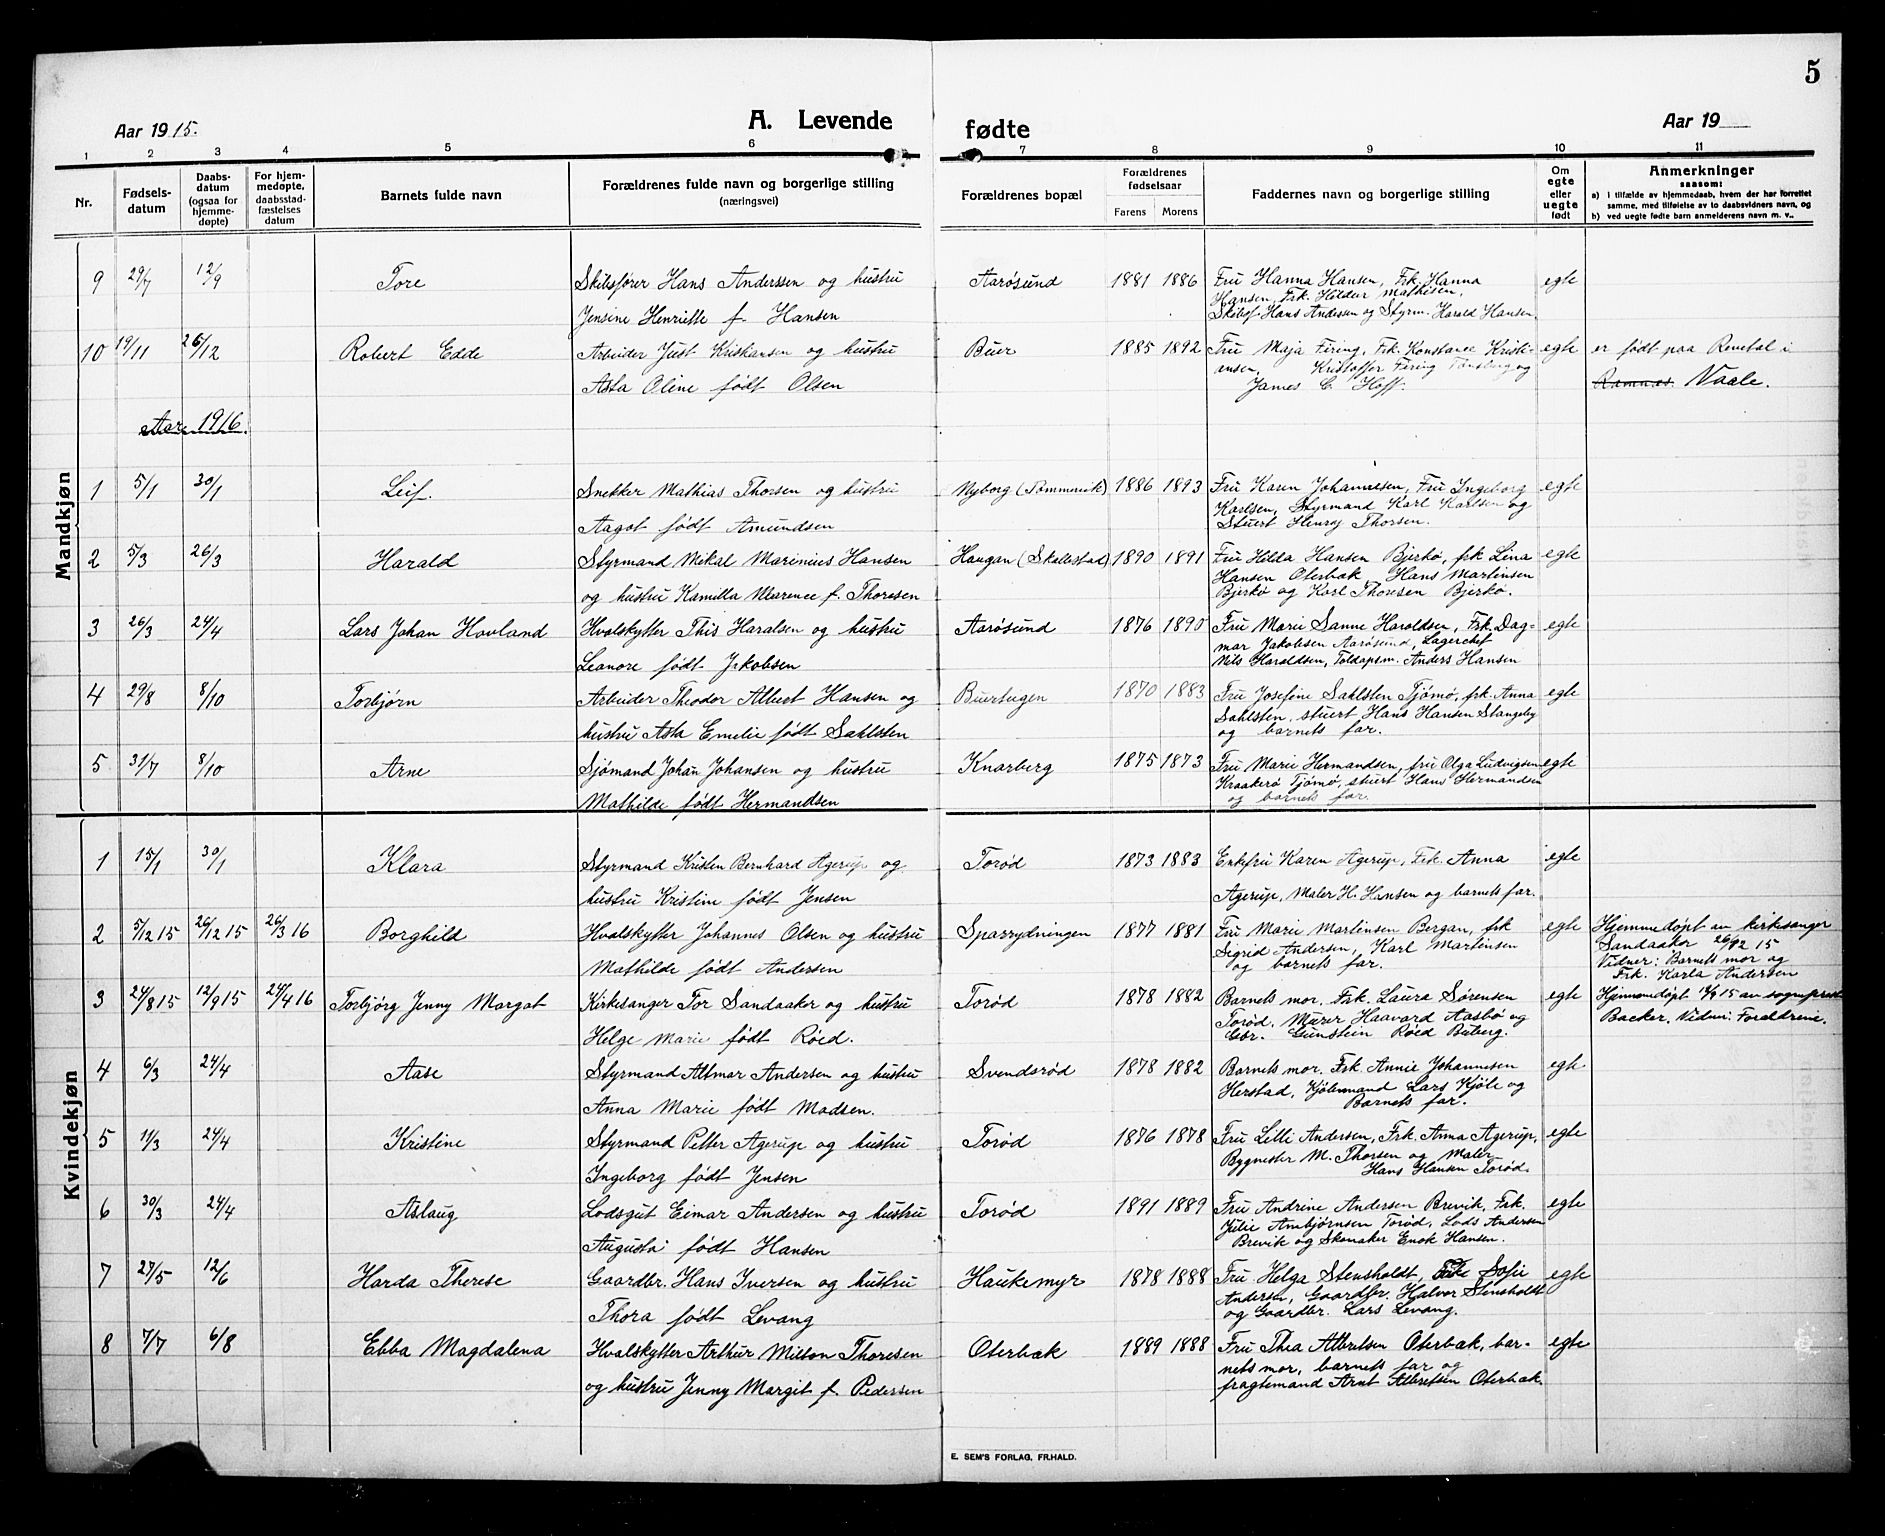 5
Aar 1915.
A. Levende fødte
Aar 19
1 2 3 4 5 6 7 8 9 10 11
Nr.
Fødsels-
datum
Daabs-
datum
(ogsaa for
hjemme-
døpte)
For hjem-
medøpte,
daabsstad-
fæstelses
datum
Barnets fulde navn
Forældrenes fulde navn og borgerlige stilling
(næringsvei)
Forældrenes bopæl
Forældrenes
fødselsaar
Farens Morens
Faddernes navn og borgerlige stilling
Om
egte
eller
uegte
født
Anmerkninger
saasom:
a) i tilfælde av hjemmedaab, hvem der har forrettet
samme, med tilføielse av to daabsvidners navn, og
b) ved uegte fødte barn anmelderens navn m. v..
Mandkjøn
9 29/7 12/9 Tore Skibsfører Hans Anderssen og hustru Aarøsund 1881 1886 Fru Hanna Hansen, Frk. Hanna egte
Hansen, Frk. Hildur Mathisen,
Jensine Henriette f. Hansen Skibsf. Hans Andersen og Styrm. Harald Hansen.
10 19/11 26/12 Robert Edde Arbeider Just Kristiansen og hustru Buer 1885 1892 Fru Maja Firing, Frk. Konstance Kristi- egte er født paa Revetal i
ansen, Kristoffer Firing Tønsberg og
Asta Oline født Olsen James C. Hoff. Ramnes Vaale.
Aar 1916.
1 5/1 30/1 Leif. Snekker Mathias Thorsen og hustru Nyborg (Tømmervik) 1886 1893 Fru Karen Johannesen, Fru Ingeborg egte
Karlsen, Styrmand Karl Karlsen og
Aagot født Amundsen Stuert Henry Thorsen.
2 5/3 26/3 Harald Styrmand Mikal Marinius Hansen Haugan (Skallestad) 1890 1891 Fru Hilda Hansen Bjerkø, frk Lina egte
Hansen Oterbæk, Hans Martinsen
og hustru Kamilla Marence f. Thoresen Bjerkø og Karl Thoresen Bjerkø.
3 26/3 24/4 Lars Johan Hovland Hvalskytter This Haralsen og hustru Aarøsund 1876 1890 Fru Marie Sanne Haroldsen, Frk. Dag- egte
mar Jakobsen Aarøsund, Lagerchef
Leanore født Jakobsen Nils Haraldsen, Toldopsm. Anders Hansen
4 29/8 8/10 Torbjørn Arbeider Theodor Albert Hansen og Buerteigen 1870 1883 Fru Josefine Sahlsten Tjømø, frk. Anna egte
Sahlsten, stuert Hans Hansen Stangeby
hustru Asta Emelie født Sahlsten og barnets far.
5 31/7 8/10 Arne Sjømand Johan Johansen og hustru Knarberg 1875 1873 Fru Marie Hermandsen, fru Olga Ludvigsen egte
Kraakerø Tjømø, stuert Hans Hermandsen
Mathilde født Hermandsen og barnets far.
Kvindekjøn
1 15/1 30/1 Klara Styrmand Kristen Bernhard Agerup og Torød 1873 1883 Enkefru Karen Agerup, Frk. Anna egte
hustru Kristine født Jensen Agerup, Maler H. Hansen og barnets far.
2 5/12 15 26/12 15 26/3 16 Borghild Hvalskytter Johannes Olsen og hustru Sparrydningen 1877 1881 Fru Marie Martinsen Bergan, frk egte Hjemmedøpt av kirkesanger
Sigrid Andersen, Karl Martinsen Sandaaker 26/12 15
Mathilde født Andersen og barnets far. Vidner: Barnets mor og
Frk. Karla Andersen
3 24/8 15 12/9 15 24/4 16 Torbjørg Jenny Margot Kirkesanger Tor Sandaaker og hustru Torød 1878 1882 Barnets mor. Frk. Laura Sørensen egte Hjemmedøpt 12/9 15 av sogneprest
Torød. Murer Haavard Aasbø og Backer. Vidner: Forældrene.
Helge Marie født Røed. Gbr. Gunstein Røed Buberg.
4 6/3 24/4 Aase Styrmand Altmar Andersen og hustru Svendsrød 1878 1882 Barnets mor. Frk Annie Johannisen egte
Herstad, Kjølemand Lars Kjøle og
Anna Marie født Madsen. Barnets far.
5 11/3 24/4 Kristine Styrmand Petter Agerup og hustru Torød 1876 1878 Fru Lilli Andersen, Frk. Anna Agerup, egte
Bygmester M. Thorsen og Maler
Ingeborg født Jensen Hans Hansen Torød.
6 30/3 24/4 Aslaug Lodsgut Eimar Andersen og hustru Torød 1891 1889 Fru Andrine Andersen Brevik, Frk. egte
Julie Arnbjørnsen Torød, Lods Andersen
Augusta født Hansen Brevik og Skomaker Enok Hansen.
7 27/5 12/6 Harda Therese Gaardbr. Hans Iversen og hustru Haukemyr 1878 1888 Fru Helga Stensholdt, Frk Sofie egte
Andersen, Gaardbr. Halvor Stensholdt
Thora født Levang og Gaardbr. Lars Levang.
8 7/7 6/8 Ebba Magdalena Hvalskytter Arthur Milton Thoresen Oterbæk 1889 1888 Fru Thea Albretsen Oterbæk, bar- egte
nets mor, barnets far og
og hustru Jenny Margit f. Pedersen fragtemand Arnt Albretsen Oterbæk.
E. SEM'S FORLAG, FR.HALD.